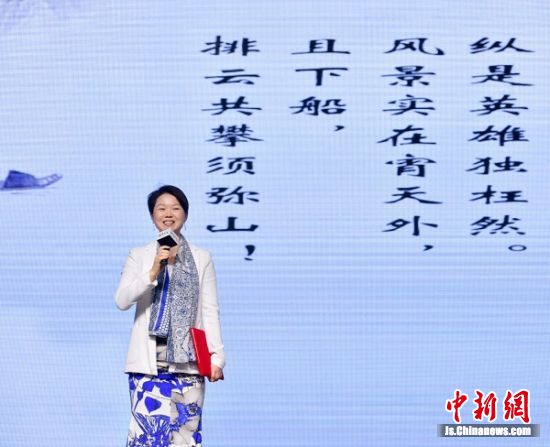 纵是英雄独枉然。
风景实在宵天外，
且下船，
排云共攀须弥山！
中新網
Js.Chinanews.com